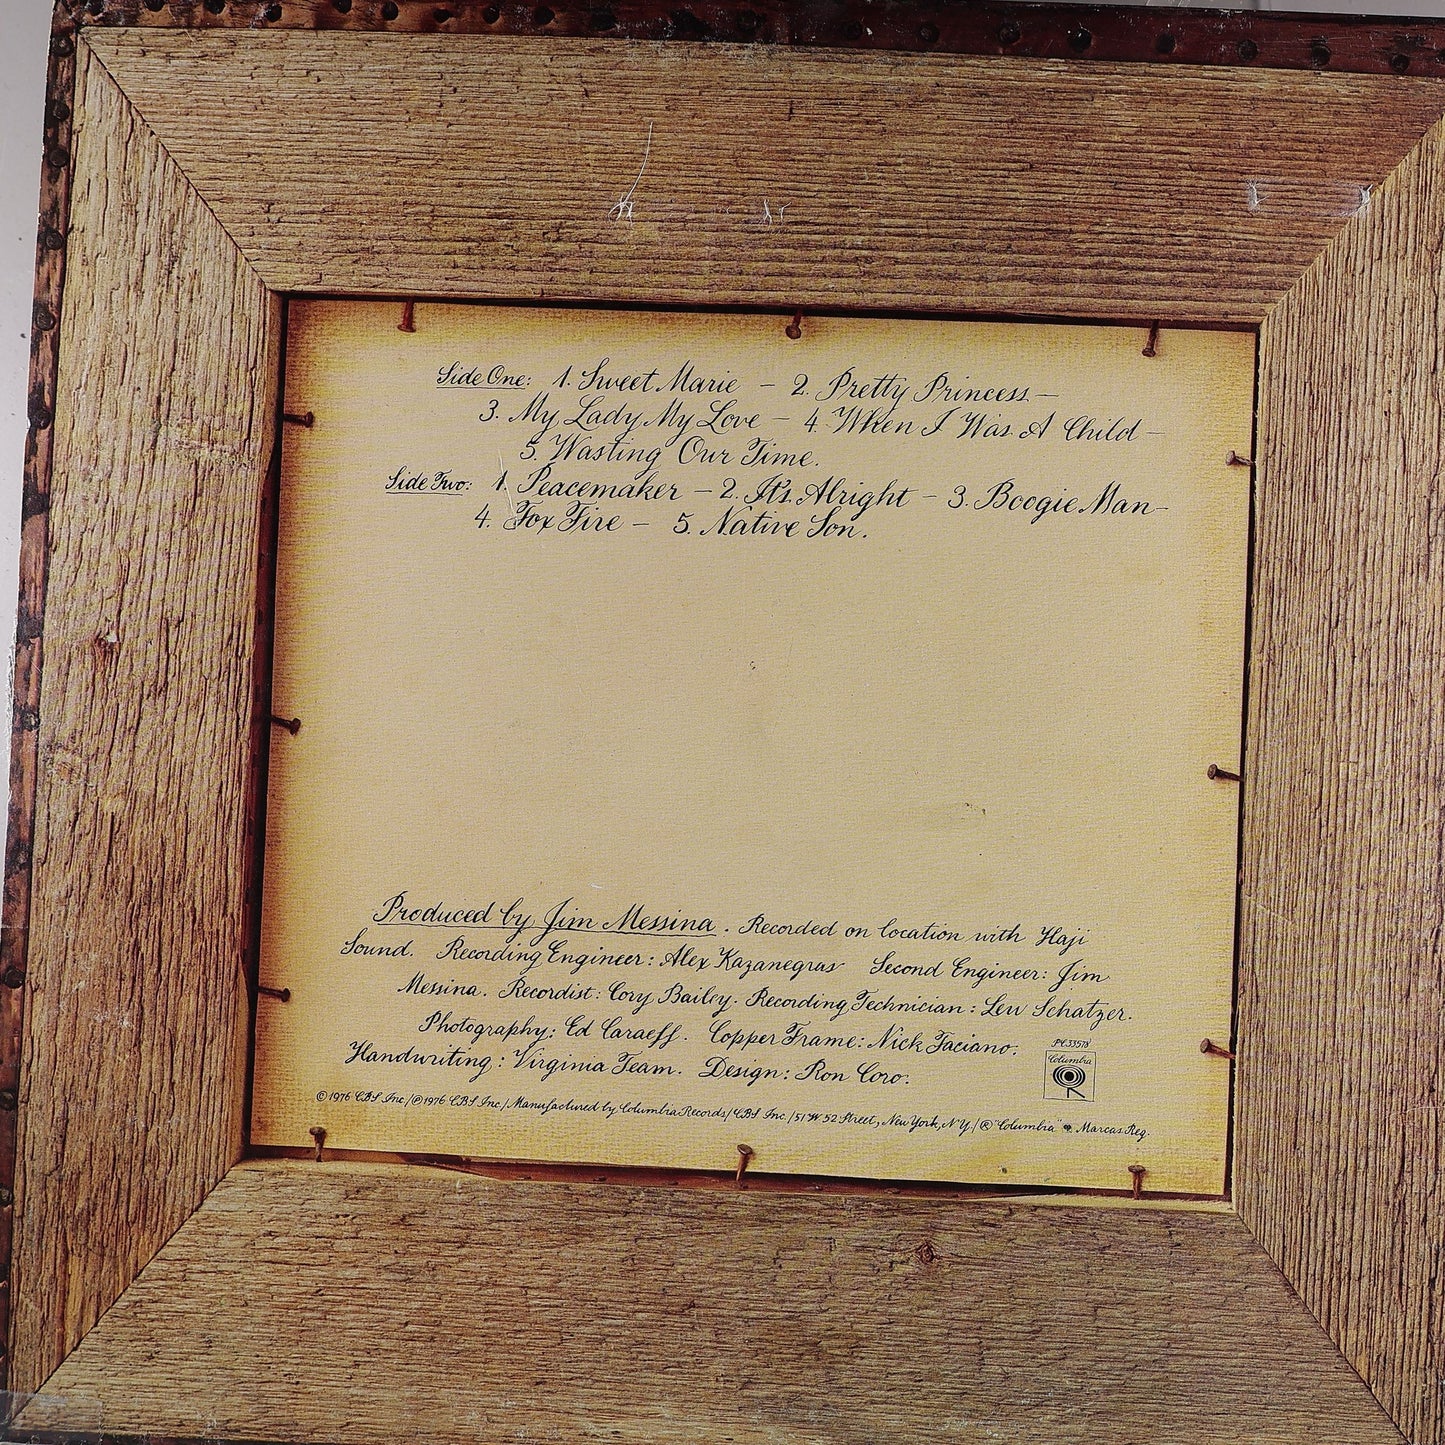 Side One: 1. Sweet Marie – 2. Pretty Princess –
3. My Lady My Love – 4. When I Was A Child –
5. Wasting Our Time.
Side Two: 1. Peacemaker – 2. It's Alright – 3. Boogie Man –
4. Fox Fire – 5. Native Son.
Produced by Jim Messina. Recorded on location with Haji
Sound. Recording Engineer: Alex Kazanegras Second Engineer: Jim
Messina. Recordist: Cory Bailey. Recording Technician: Lew Schatzer.
Photography: Ed Caraeff. Copper Frame: Nick Faciano.
Handwriting: Virginia Team. Design: Ron Coro.
PC 33578
Columbia
© 1976 CBS Inc./℗ 1976 CBS Inc./Manufactured by Columbia Records/CBS Inc./51 W 52 Street, New York, N.Y./® "Columbia" Marcas Reg.